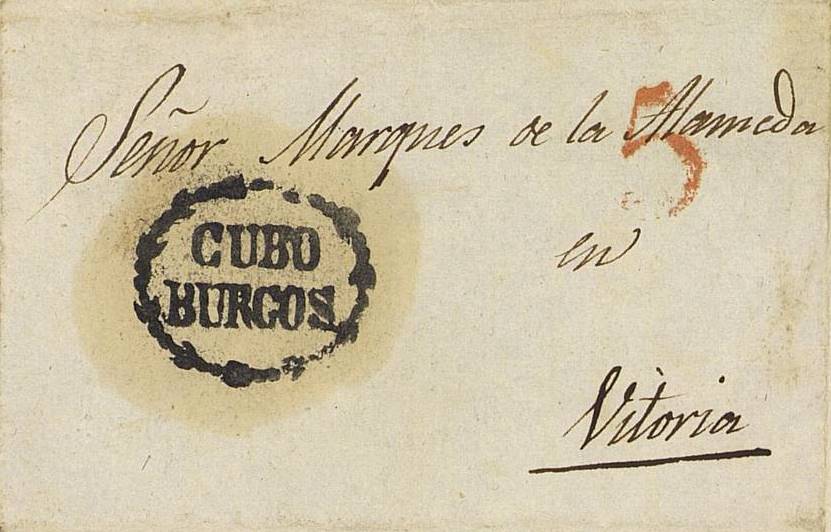 Señor Marques de la Alameda
5
CUBO
BURGOS
en
Vitoria